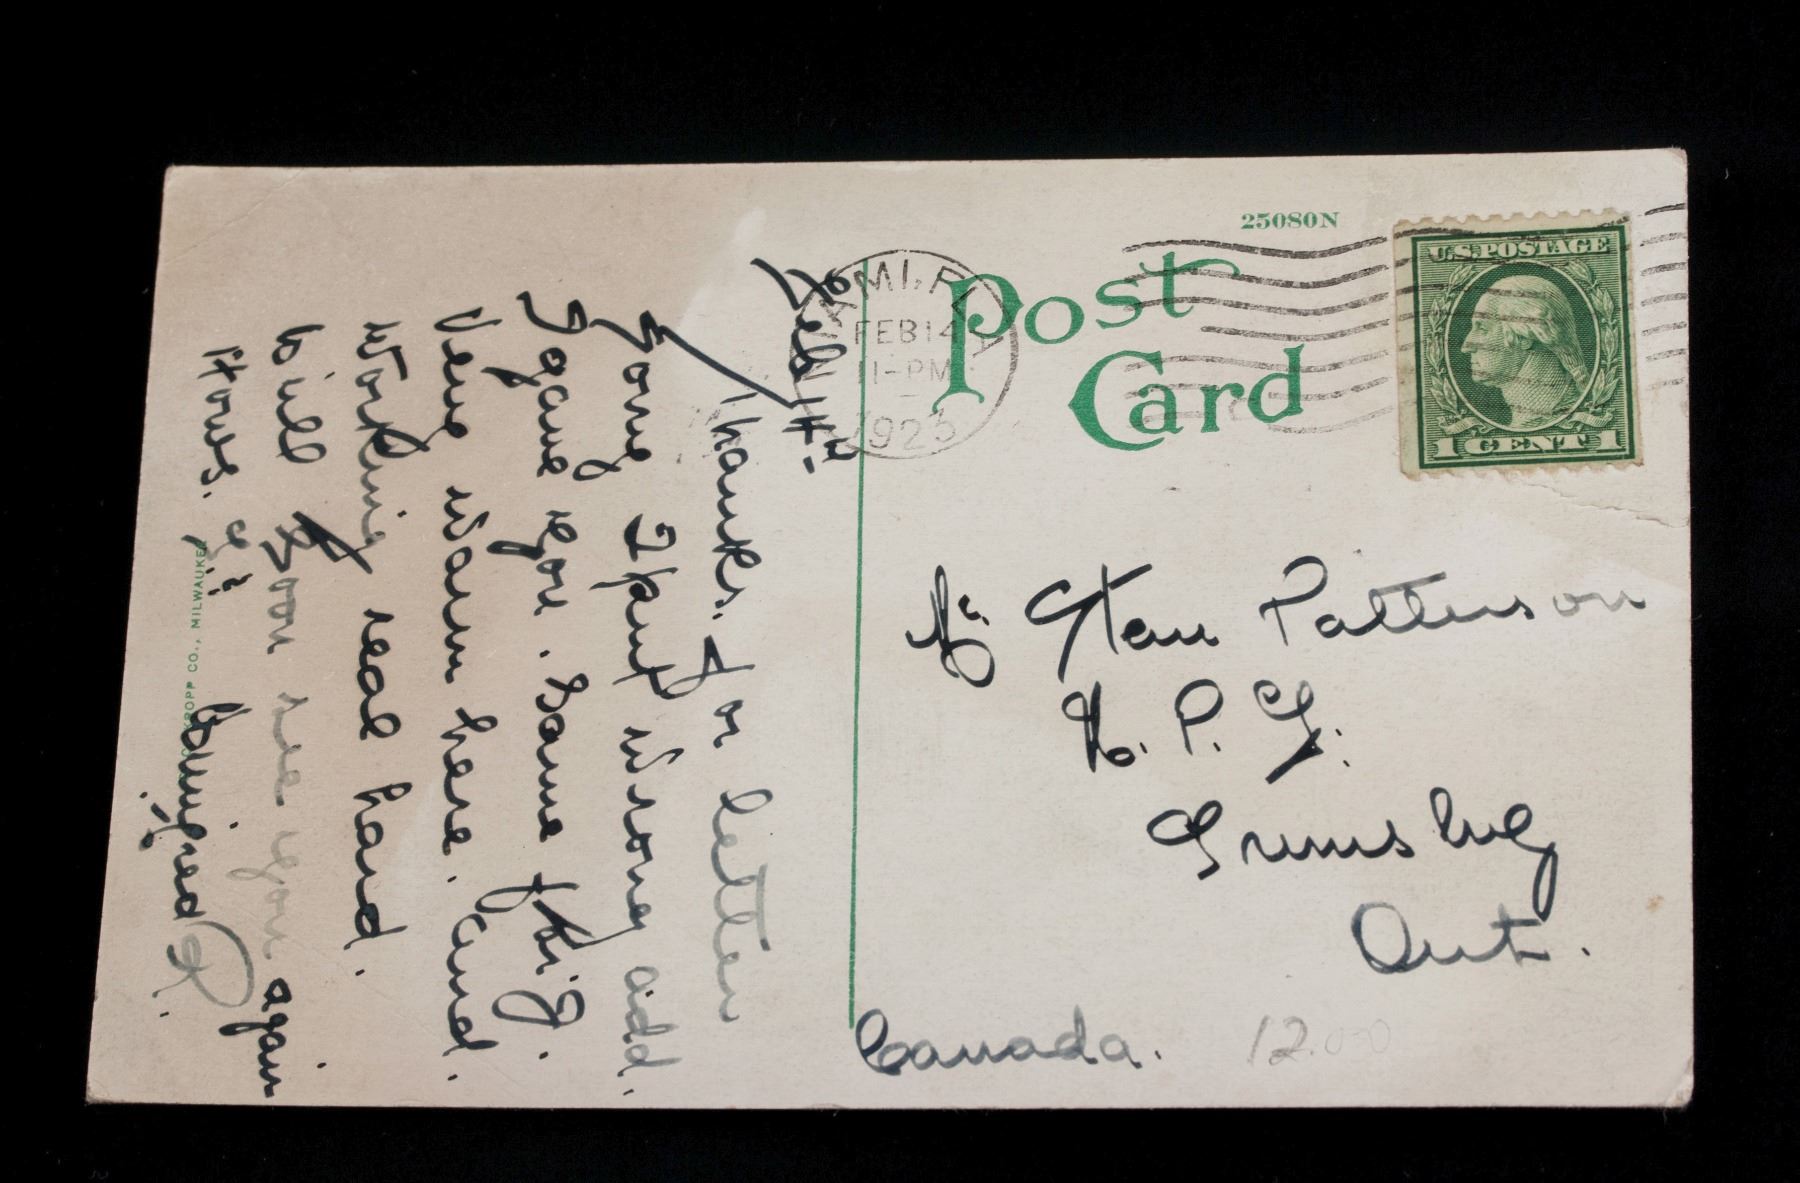 25080N
Post
Card
U.S. POSTAGE
1 CENT 1
MIAMI, FLA
FEB 14
11-PM
1923
Feb 14th
Thanks. for letter
Sorry I part wrong add.
I gave you. Same thing.
Very warm here. and.
Working real hard.
will soon see you again
Hows.
KROPP CO., MILWAUKEE
Mr Stan Patterson
H. P. Y.
Grimsby
Ont.
Canada.
12.00